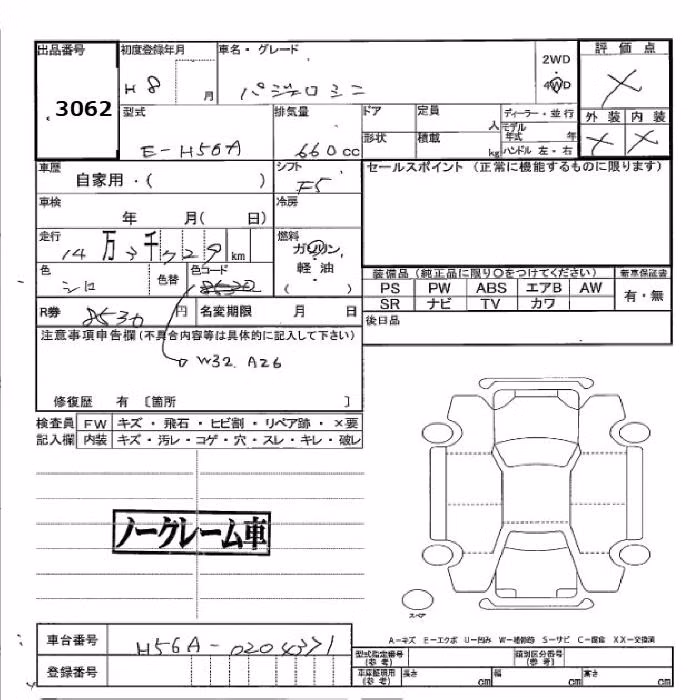 出品番号 初度登録年月 車名・グレード 2WD 評価点
3062 H 8 月 パジェロミニ 4WD X
型式 排気量 ドア 定員 人 ディーラー・並行 外装 内装
E-H56A 660 cc 形状 積載 kg モデル年式 年 ハンドル 左・右 X X
車歴 自家用・( ) シフト F5 セールスポイント (正常に機能するものに限ります)
車検 年 月( 日) 冷房
走行 14 万 3 千 729 km 燃料 ガソリン, 軽油 ( )
色 シロ 色替 色コード 8530 装備品 (純正品に限り○をつけてください) 新車保証書
PS PW ABS エアB AW 有・無
SR ナビ TV カワ
R券 8530 円 名変期限 月 日 後日品
注意事項申告欄 (不具合内容等は具体的に記入して下さい)
W32 A26
修復歴 有 〔箇所 〕
検査員 FW キズ・飛石・ヒビ割・リペア跡・×要
記入欄 内装 キズ・汚レ・コゲ・穴・スレ・キレ・破レ
ノークレーム車
スペア
A-キズ E-エクボ U-凹み W-補修跡 S-サビ C-腐食 XX-交換済
車台番号 H56A-0204371 型式指定番号 (参考) 類別区分番号 (参考)
登録番号 車庫証明用 (参考) 長さ cm 幅 cm 高さ cm